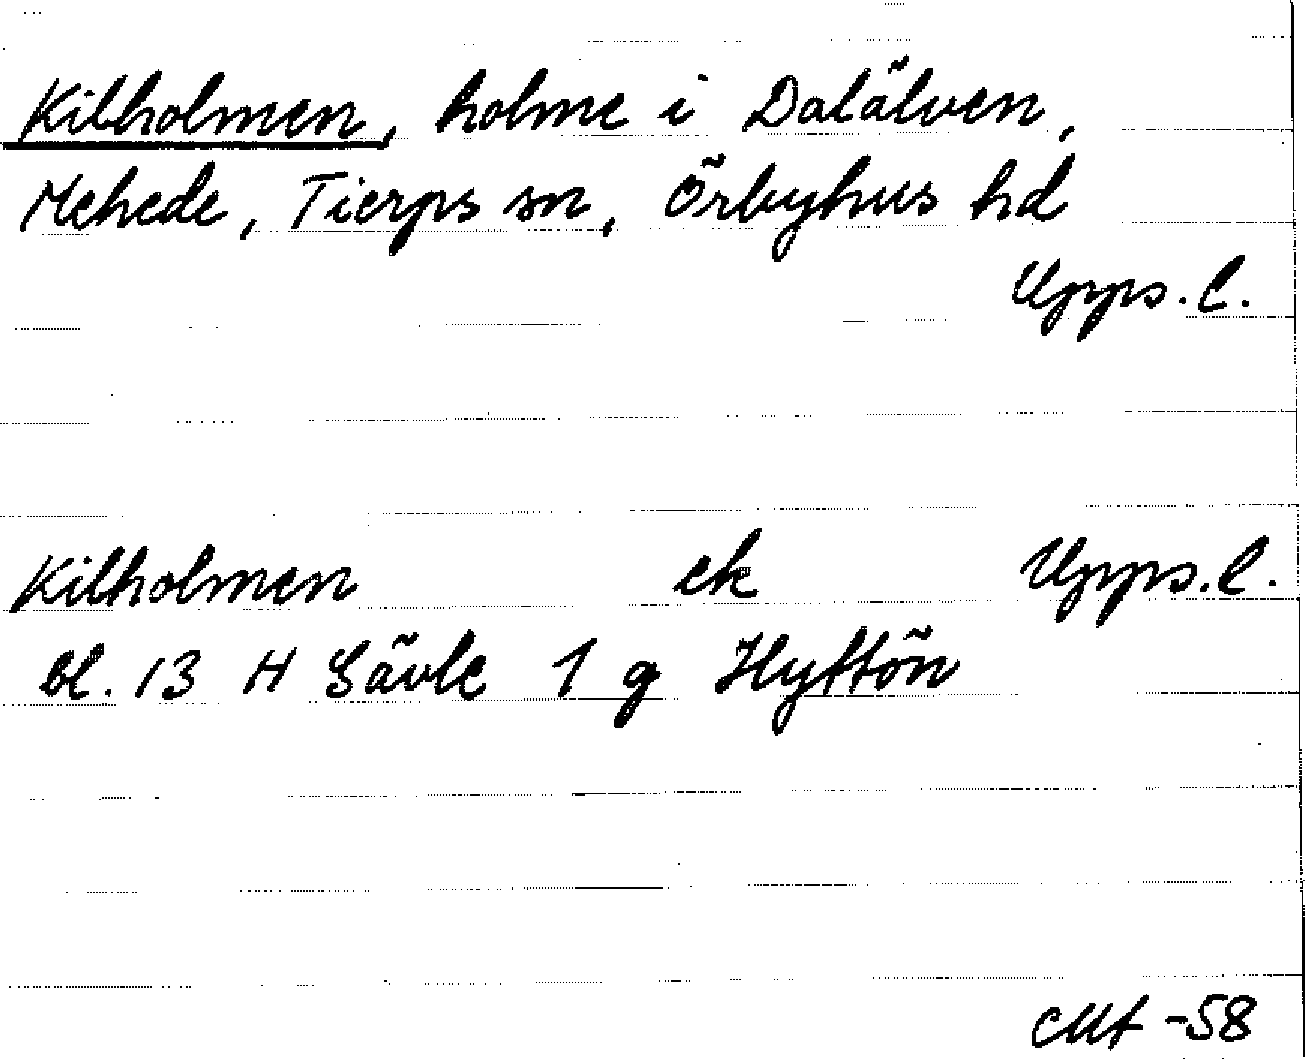 Kilholmen, holme i Dalälven,
Mehede, Tierps sn, Örbyhus hd
Upps. l.
Kilholmen ek Upps. l.
Bl. 13 H Gävle 1 g Hyttön
-58